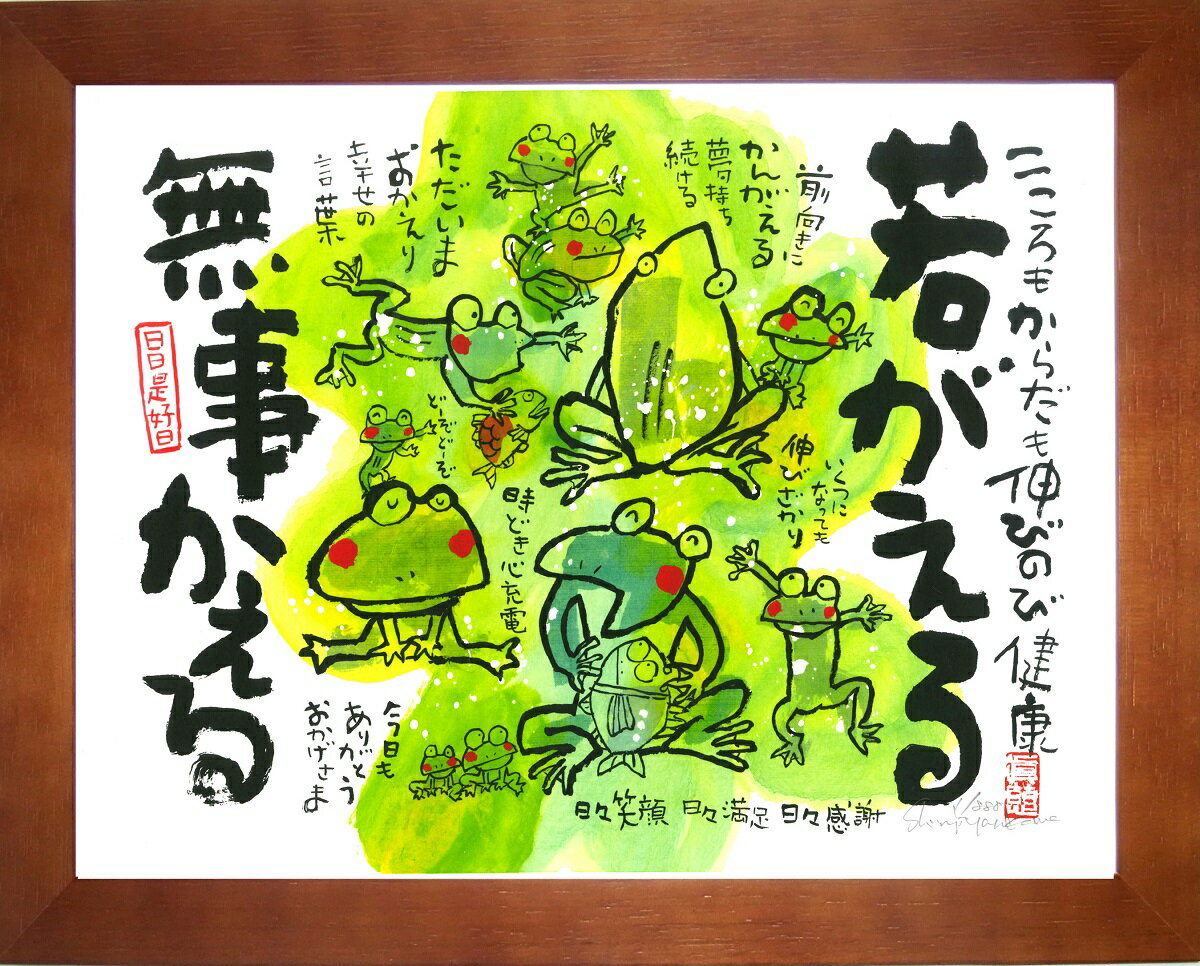 こころもからだも伸びのび健康
若がえる
前向きに
かんがえる
夢持ち
続ける
いくつに
なっても
伸びざかり
ただいま
おかえり
幸せの
言葉
どーぞどーぞ
時どき心充電
無事かえる
日日是好日
今日も
ありがとう
おかげさま
日々笑顔 日々満足 日々感謝